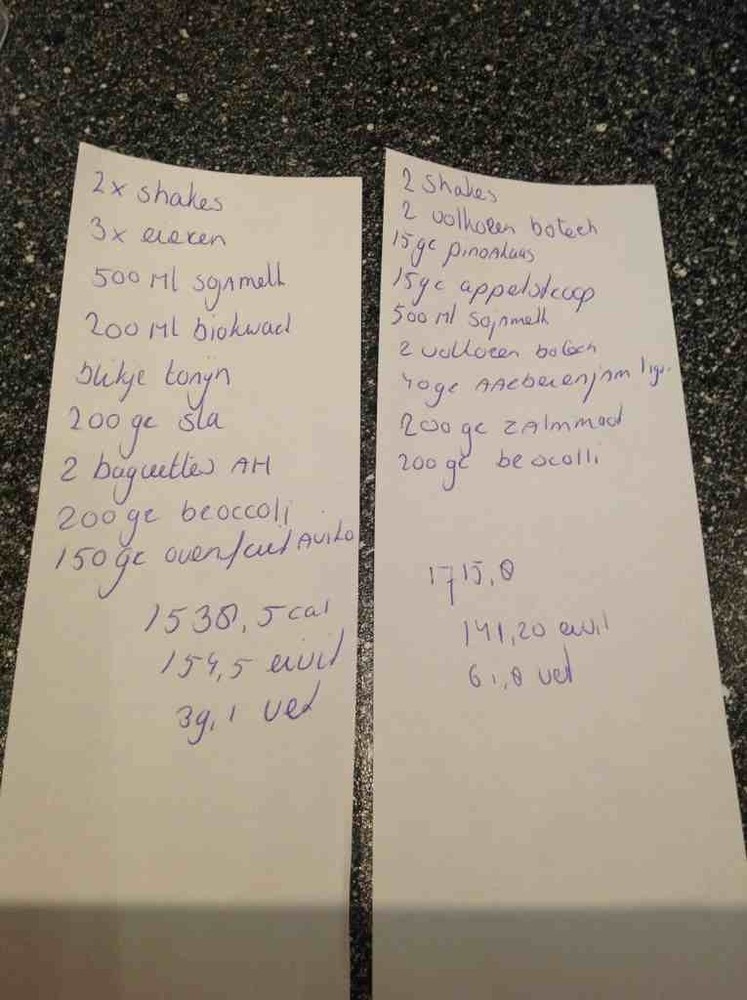 2x shakes
3x eieren
500 Ml sojamelk
200 Ml biokwad
blikje tonijn
200 gr sla
2 baguettes AH
200 gr broccoli
150 gr ovenfriet Aviko
1538,5 cal
154,5 eiwit
39,1 vet
2 Shakes
2 volkoren boteh
15 gr pindakaas
15 gr appelstroop
500 Ml sojamelk
2 volkoren boteh
40 gr AArbeienjam
200 gr ZAlmmoot
200 gr brocolli
1715,8
141,20 eiwit
61,8 vet